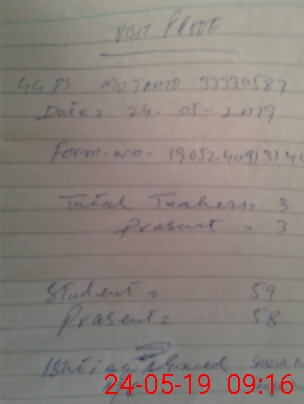 VISIT PROOF
GGPS MUTAHID 33330587
Date: 24-05-2019
Form-no- 190524091314
Total Teachers = 3
Present = 3
Student = 59
Present = 58
Ishtiaq Ahmed
24-05-19 09:16